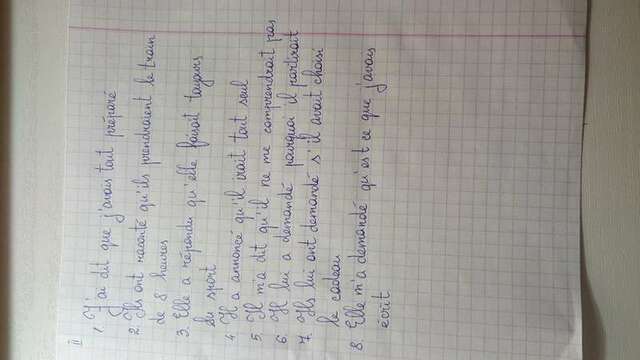 II
1. J'ai dit que j'avais tout préparé
2. Ils ont raconté qu'ils prendraient le train
de 8 heures
3. Elle a répondu qu'elle faisait toujours
du sport
4 Il a annoncé qu'il irait tout seul
5. Il m'a dit qu'il ne me comprendrait pas
6. Il lui a demandé pourquoi il partirait
7. Ils lui ont demandé s'il avait choisi
le cadeau
8. Elle m'a demandé qu'est ce que j'avais
écrit